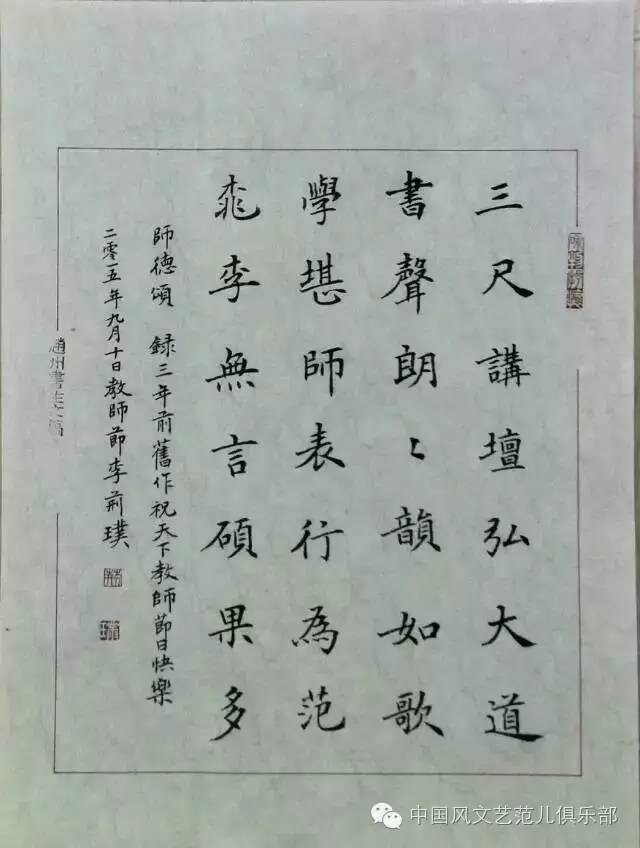 三尺講壇弘大道
書聲朗〻韻如歌
學堪師表行為范
桃李無言碩果多
師德頌 録三年前舊作祝天下教師節日快樂
二零一五年九月十日教師節李荊璞
趙州書
中国风文艺范儿俱乐部